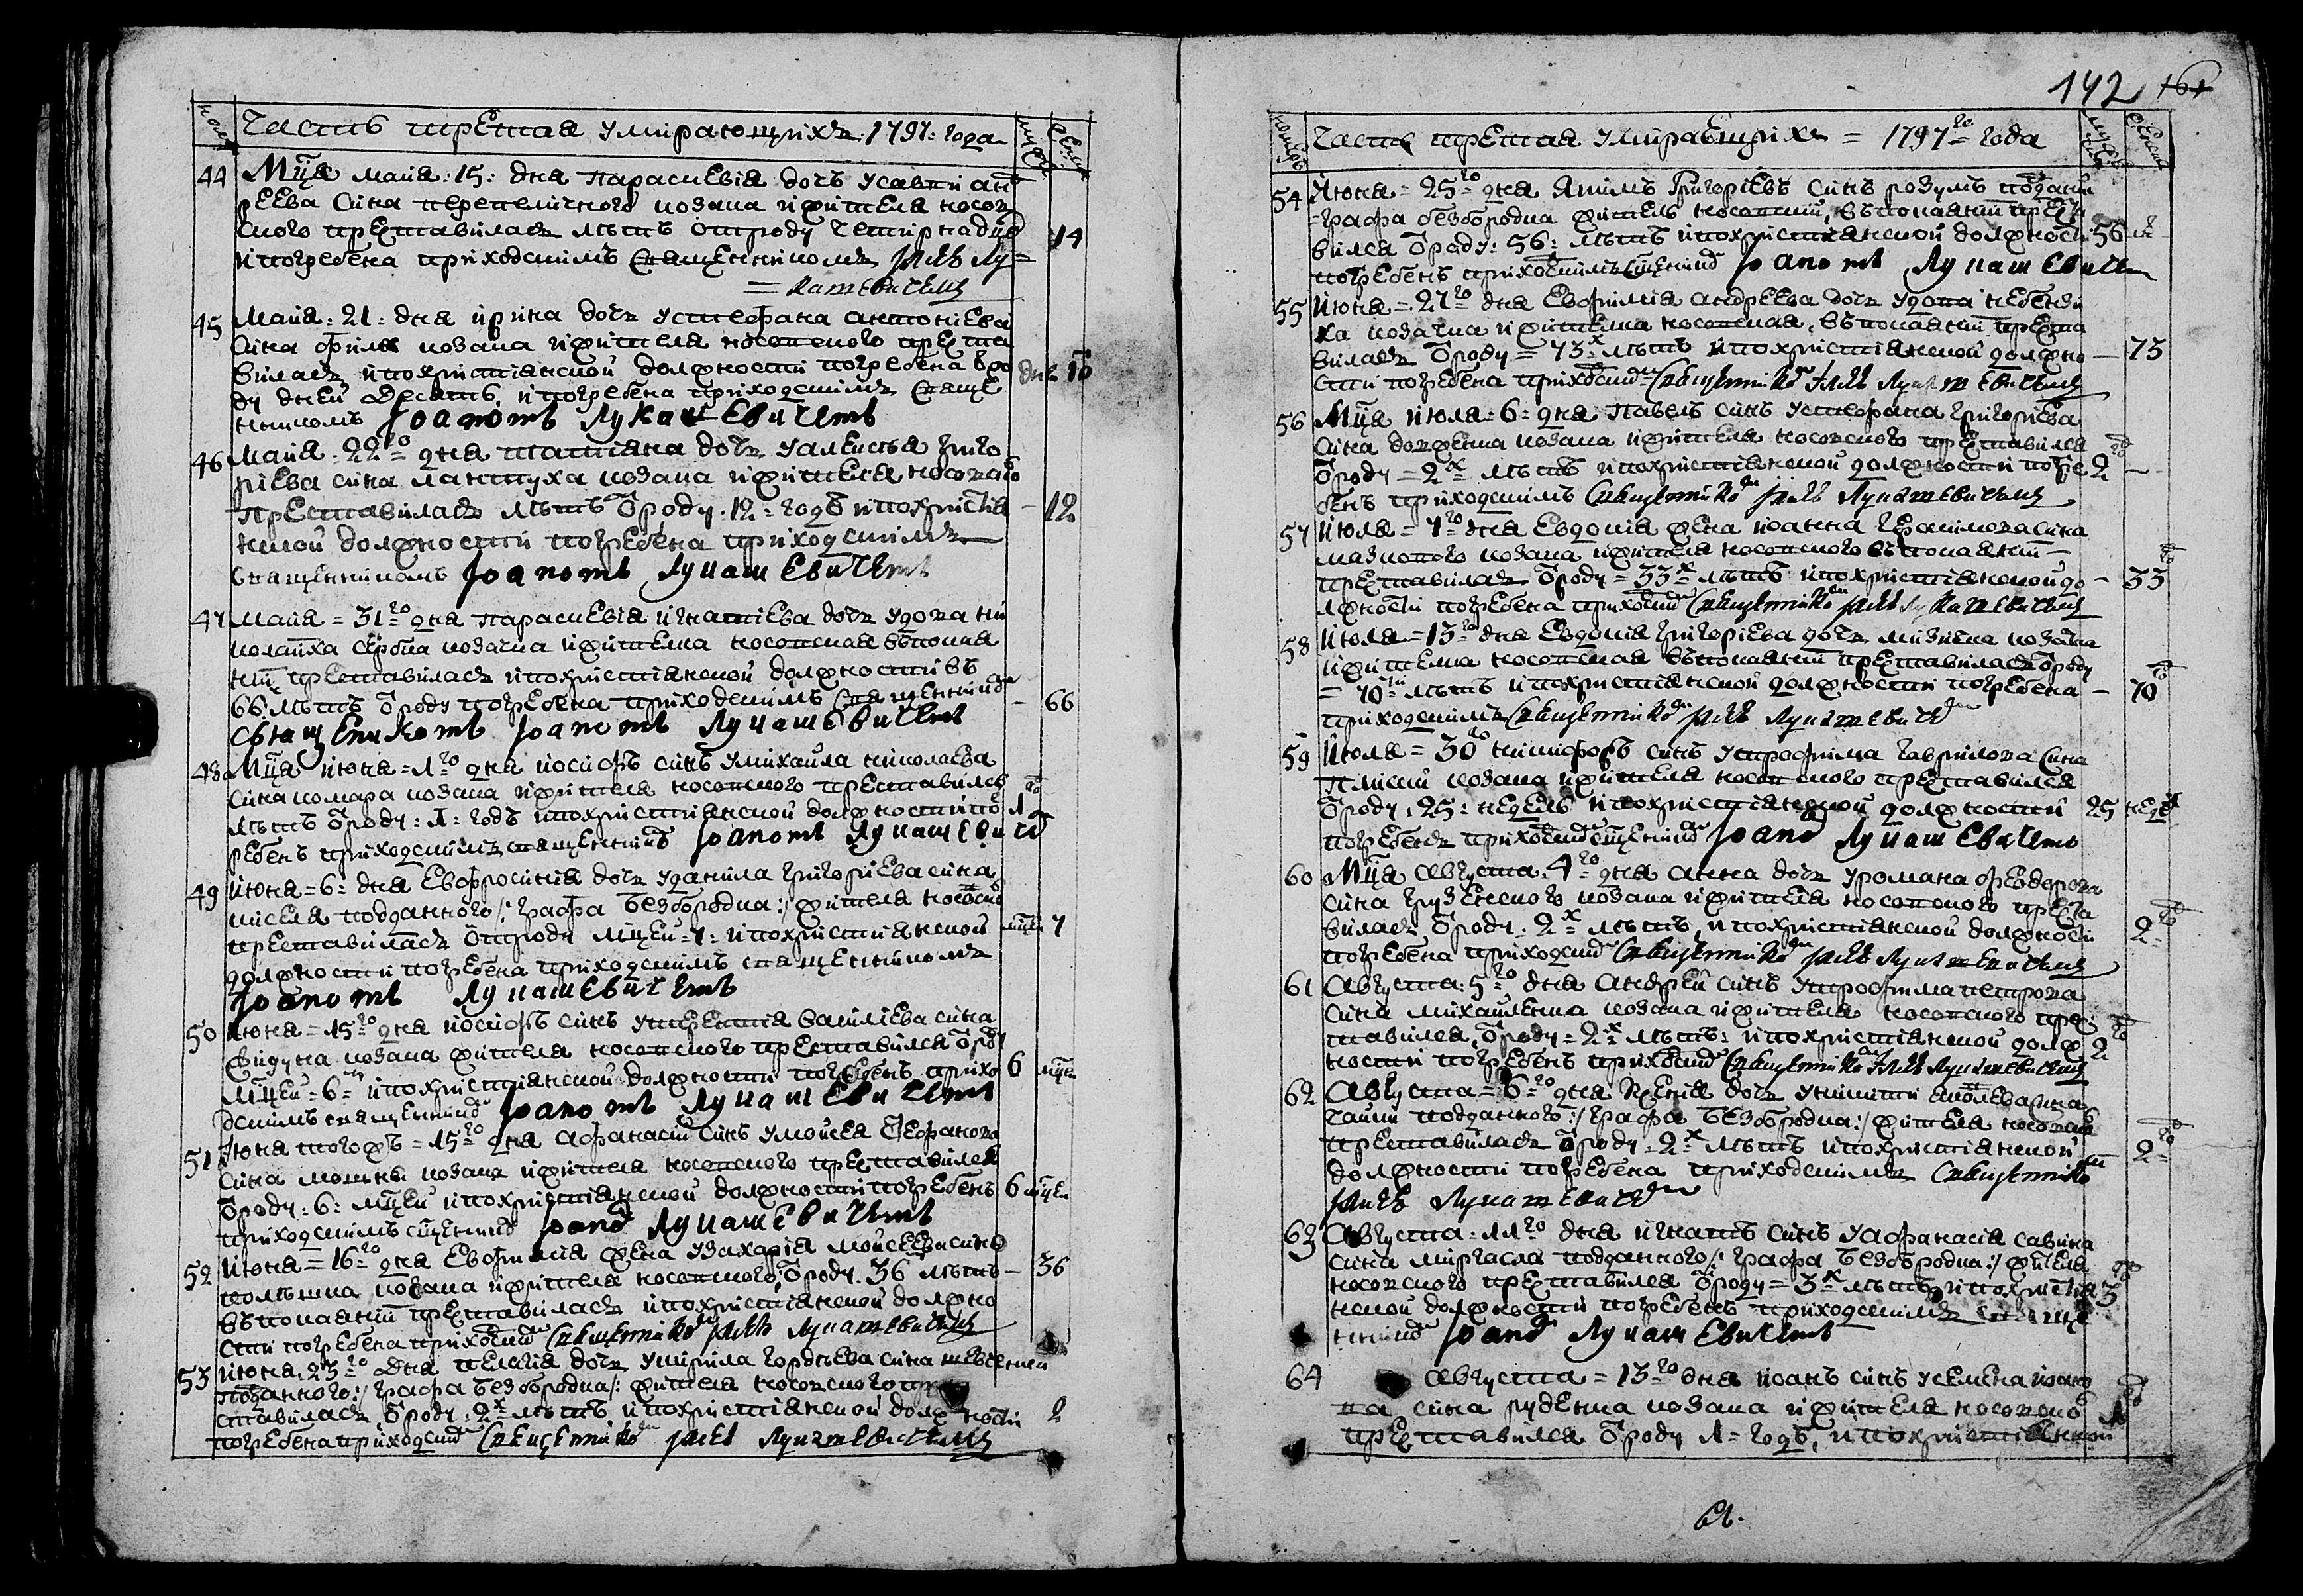 Часть третая умираюшрихъ: 1797: года
44 Мца маиа: 15: дна параскевіа дочь у савки анд
реева сина перепелычного козака и жителя носов
ского преставиласъ лѣтъ отроду четирнадцр 14
и погребена приходскимъ сващенникомъ Іоан Лу=
=кашевичемъ
45 Маиа: 21: дна ирина дочъ у стефана антониева
сина филя козака и жителя носовского преста
виласъ и по христіанской должности погребена ѿро
ду дней десать, и погребена приходскимъ сваще дне 10
нникомъ Іоанномъ Лукашевичемъ
46 Маиа: 22го дна татіана дочъ у алексѣа григо
ріева сина лантуха козака и жителя носовско
преставиласъ лѣтъ ѿроду: 12: годъ и по христіа – 12
нской должности погребена приходскимъ
сващенникомъ Іоаномъ Лукашевичемъ
47 Маиа = 31го дна параскевіа игнатіева дочъ удова ни
колаиха сербка козачка и жителка носовская въ покая
ніи преставиласъ и по христіанской должности въ
66: лѣтъ ѿроду погребена приходскимъ сващенник – 66
священикомъ Іоаномъ Лукашевичемъ
48 Мца июна = 1го дна иосифъ синъ у михаила николаева
сина комара козака и жителя носовского преставился
лѣтъ ѿроду: 1: годъ и по христіанской должности пог 1
ребенъ приходскимъ сващенникъ Іоаномъ Лукашевиче
49 июна = 6: дна Евфросиніа дочъ у данила григоріева сина
кисела подданного /: графа Безбородка :/ жителя носовск
преставиласъ ѿтроду мцей: 7: и по христіанской мцей 7
должности погребена приходскимъ сващенникомъ
Іоаномъ Лукашевичемъ
50 июна = 15го дна иосифъ синъ у терентіа василіева сина
козака жителя носовского преставился ѿроду
мцей = 6ти и по христіанской должности погребенъ прихо 6 мцей
дскимъ сващенник Іоаномъ Лукашевичемъ
51 Июна тогожъ = 15го дна афанасій синъ у моисеа стефанова
сина козака и жителя носовского преставился
ѿроду: 6: мцей и по христіанской должности погребенъ 6 мцей
приходскимъ сщенник Іоано Лукашевичемъ
52 июна = 16го дна Евфиміа жена у захаріа моисеева сина
козака и жителя носовского ѿроду 36 лѣтъ – 36
въ покаяніи преставиласъ и по христіанской должно
сти погребена приходским священником Іоан Лукашевичемъ
53 июна 23го дна пелагіа дочъ у кирила гордѣева сина
подданного :/ графа Безбородка /: жителя носовского пре
ставиласъ ѿроду: 2х лѣтъ и по христіанской должности 2
погребена приходским священником Іоан Лукашевичемъ
142 161
Часть третая умиравшрихъ = 1797го года
54 июна = 25го дна якимъ григоріевъ синъ розумъ поддани
=графа безбородка житель носовский, въ покаяніи преста
вился ѿроду: 56: лѣтъ и по христіанской должности 56
погребенъ приходскимъ сщенник Іоаномъ Лукашевичем
55 июна = 27го дна Евфиміа андреева дочъ удова
козачка и жителка носовская, въ покаяніи преста
виласъ ѿроду = 73х лѣтъ и по христіанской должно – 73
сти погребена приходским священником Іоан Лукашевичемъ
56 Мца июла: 6: дна павелъ синъ у стефана григоріева
сина козака и жителя носовского преставился
ѿроду = 2х лѣтъ и по христіанской должности погре 2 –
бенъ приходскимъ священником Іоан Лукашевичемъ
57 июла = 7го дна Евдокіа жена иоанна герасимова сина
козака и жителя носовского въ покаяніи –
преставиласъ ѿроду = 33х лѣтъ и по христіанской до – 33
лжности погребена приходским священником Іоан Лукашевичемъ
58 июла = 13го дна Евдокіа григоріева дочъ козачка
и жителка носовская въ покаяніи преставиласъ ѿроду
= 70ти лѣтъ и по христіанской должности погребена – 70
приходскимъ священником Іоан Лукашевиче
59 июла = 30го никифоръ синъ у трофима гаврилова сина
козака и жителя носовского преставился
ѿроду: 25: недель и по христіанской должности 25 недел
погребенъ приходским сщенник Іоано Лукашевичемъ
60 Мца августа 4го дна анна дочъ у романа феодорова
сина козака и жителя носовского преста
виласъ ѿроду: 2х лѣтъ, и по христіанской должности 2
погребена приходским священником Іоан Лукашевичемъ
61 августа: 5го дна андрей синъ у трофима петрова
сина михайленка козака и жителя носовского пре
ставился, ѿроду = 2х лѣтъ: и по христіанской долж 2
ности погребенъ приходским священником Іоан Лукашевичемъ
62 августа = 6го дна дочъ у никити
подданного :/ графа Безбородка :/ жителя носовск
преставиласъ ѿроду: 2х лѣтъ и по христіанской 2
должности погребена приходскимъ священником
Іоан Лукашевиче
63 августа: 11го дна игнатъ синъ у афанасіа савина
сина подданного /: графа Безбородка :/ жителя
носовского преставился ѿроду = 3х лѣтъ и по христіа 3
нской должности погребенъ приходскимъ сваще
нник Іоано Лукашевичемъ
64 августа = 13го дна иоанъ синъ у семена иоан
на сина руденка козака и жителя носовско
преставился ѿроду 1 = годъ, и по христіанской 1